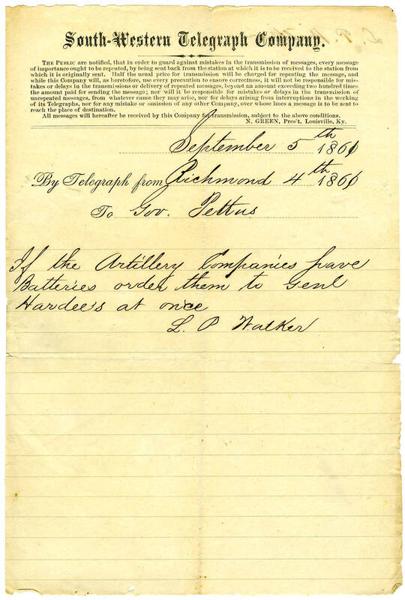 South-Western Telegraph Company.
THE PUBLIC are notified, that in order to guard against mistakes in the transmission of messages, every message
of importance ought to be repeated, by being sent back from the station at which it is to be received to the station from
which it is originally sent. Half the usual price for transmission will be charged for repeating the message, and
while this Company will, as heretofore, use every precaution to ensure correctness, it will not be responsible for mis-
takes or delays in the transmissions or delivery of repeated messages, beyond an amount exceeding two hundred times
the amount paid for sending the message; nor will it be responsible for mistakes or delays in the transmission of
unrepeated messages, from whatever cause they may arise, nor for delays arising from interruptions in the working
of its Telegraphs, nor for any mistake or omission of any other Company, over whose lines a message is to be sent to
reach the place of destination.
All messages will hereafter be received by this Company for transmission, subject to the above conditions.
N. GREEN, Pres't, Louisville, Ky.
September 5th 1861
By Telegraph from Richmond 4th 1861
To Gov. Pettus
If the Artillery Companies have
Batteries order them to Genl
Hardee's at once
L. P. Walker